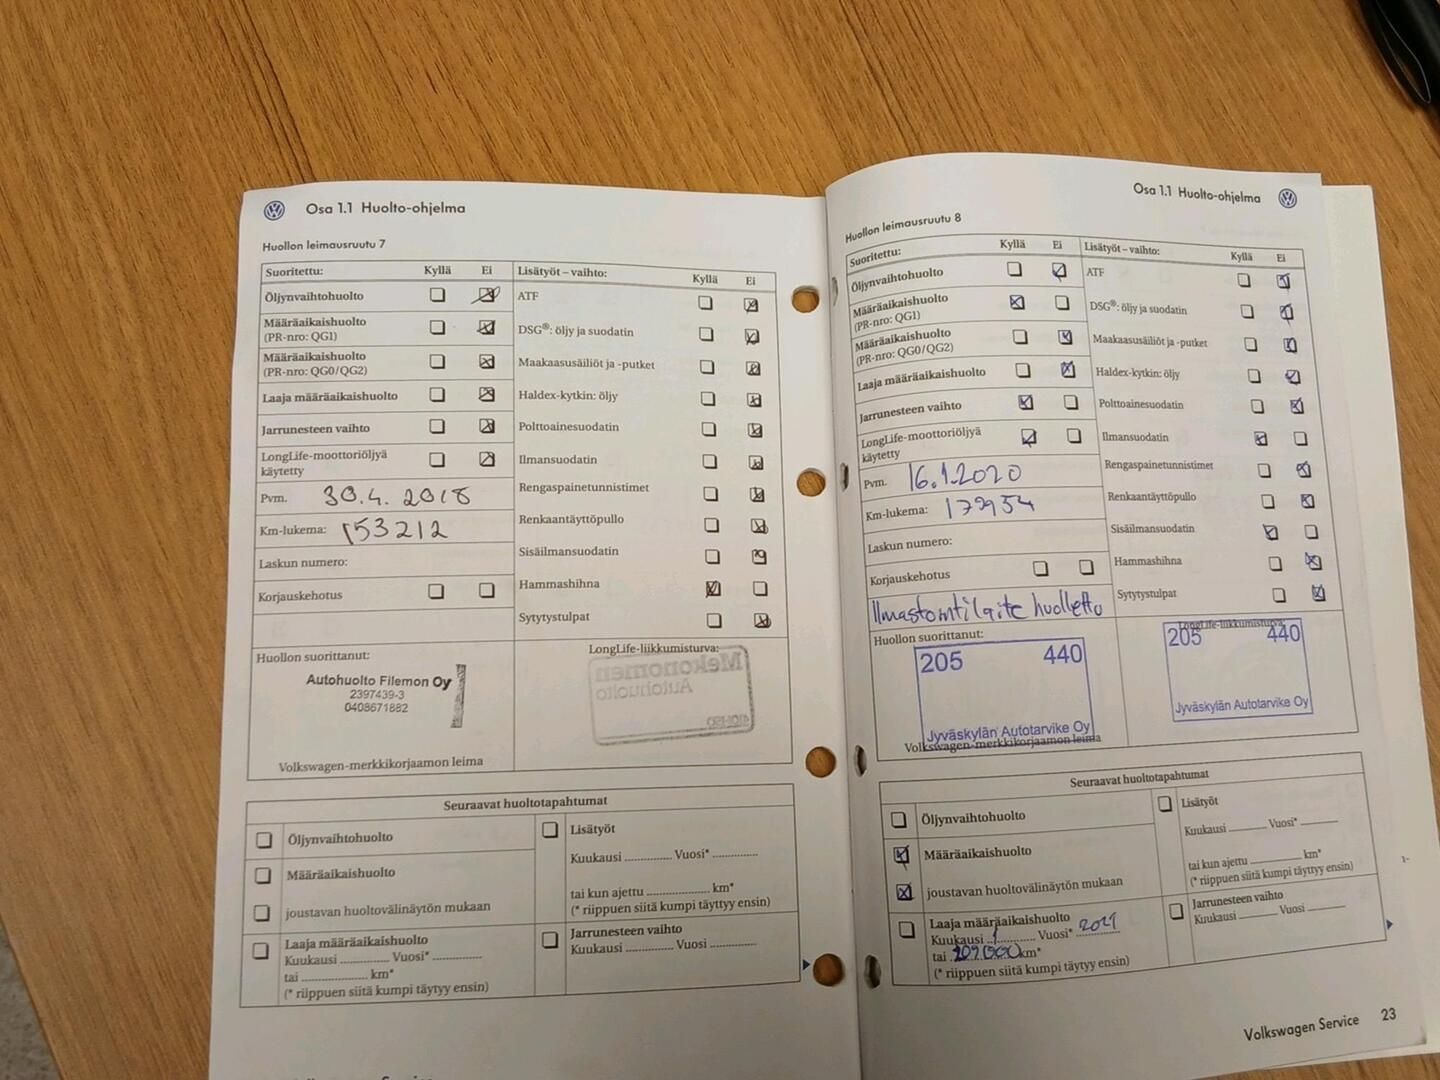 Osa 1.1 Huolto-ohjelma
Huollon leimausruutu 7
Suoritettu: Kyllä Ei
Öljynvaihtohuolto
Määräaikaishuolto
(PR-nro: QG1)
Määräaikaishuolto
(PR-nro: QG0/QG2)
Laaja määräaikaishuolto
Jarrunesteen vaihto
LongLife-moottoriöljyä
käytetty
Pvm. 30.4.2018
Km-lukema: 153212
Laskun numero:
Korjauskehotus
Lisätyöt – vaihto: Kyllä Ei
ATF
DSG®: öljy ja suodatin
Maakaasusäiliöt ja -putket
Haldex-kytkin: öljy
Polttoainesuodatin
Ilmansuodatin
Rengaspainetunnistimet
Renkaantäyttöpullo
Sisäilmansuodatin
Hammashihna
Sytytystulpat
Huollon suorittanut:
Autohuolto Filemon Oy
2397439-3
0408671882
Volkswagen-merkkikorjaamon leima
LongLife-liikkumisturva:
Mekonomen
Autohuolto
Seuraavat huoltotapahtumat
Öljynvaihtohuolto
Määräaikaishuolto
joustavan huoltovälinäytön mukaan
Laaja määräaikaishuolto
Kuukausi .............. Vuosi* ..............
tai .................... km*
(* riippuen siitä kumpi täytyy ensin)
Lisätyöt
Kuukausi .............. Vuosi* ..............
tai kun ajettu .................. km*
(* riippuen siitä kumpi täytyy ensin)
Jarrunesteen vaihto
Kuukausi .............. Vuosi ..............
Osa 1.1 Huolto-ohjelma
Huollon leimausruutu 8
Suoritettu: Kyllä Ei
Öljynvaihtohuolto
Määräaikaishuolto
(PR-nro: QG1)
Määräaikaishuolto
(PR-nro: QG0/QG2)
Laaja määräaikaishuolto
Jarrunesteen vaihto
LongLife-moottoriöljyä
käytetty
Pvm. 16.1.2020
Km-lukema: 172954
Laskun numero:
Korjauskehotus
Ilmastointilaite huollettu
Lisätyöt – vaihto: Kyllä Ei
ATF
DSG®: öljy ja suodatin
Maakaasusäiliöt ja -putket
Haldex-kytkin: öljy
Polttoainesuodatin
Ilmansuodatin
Rengaspainetunnistimet
Renkaantäyttöpullo
Sisäilmansuodatin
Hammashihna
Sytytystulpat
Huollon suorittanut:
205 440
Jyväskylän Autotarvike Oy
Volkswagen-merkkikorjaamon leima
LongLife-liikkumisturva:
205 440
Jyväskylän Autotarvike Oy
Seuraavat huoltotapahtumat
Öljynvaihtohuolto
Määräaikaishuolto
joustavan huoltovälinäytön mukaan
Laaja määräaikaishuolto
Kuukausi 1 Vuosi* 2021
tai km*
(* riippuen siitä kumpi täytyy ensin)
Lisätyöt
Kuukausi .............. Vuosi* ..............
tai kun ajettu .................. km*
(* riippuen siitä kumpi täytyy ensin)
Jarrunesteen vaihto
Kuukausi .............. Vuosi ..............
Volkswagen Service 23